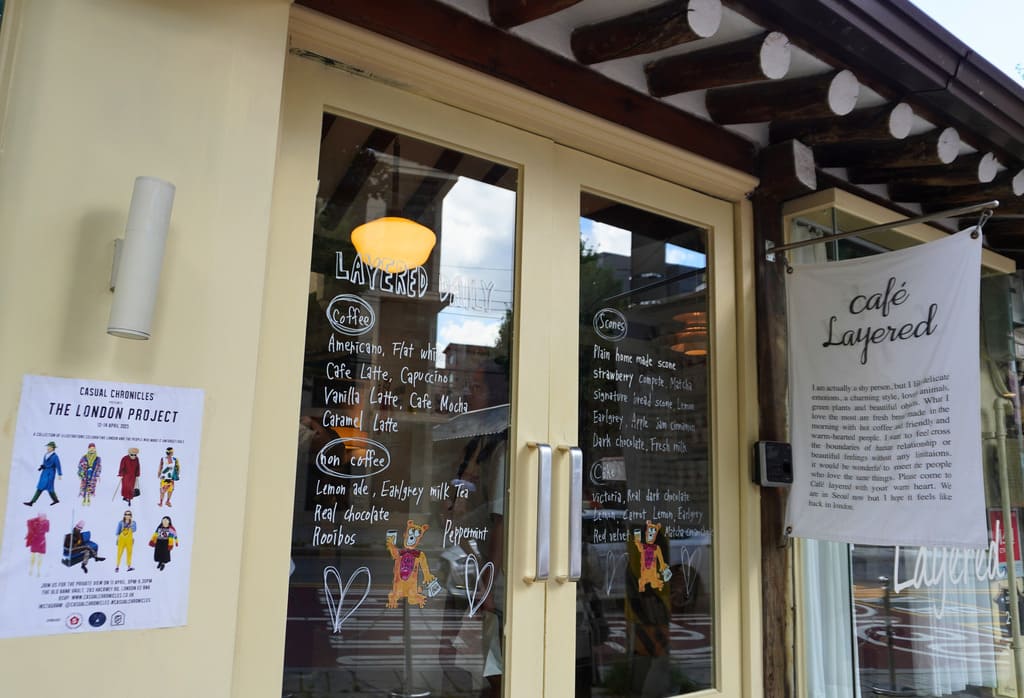 CASUAL CHRONICLES'
PRESENTS
THE LONDON PROJECT
12-14 APRIL 2023
A COLLECTION OF ILLUSTRATIONS CELEBRATING LONDON AND THE PEOPLE WHO MAKE IT
JOIN US FOR THE PRIVATE VIEW ON 11 APRIL, 6PM-9.30PM
THE OLD BANK VAULT, 283 HACKNEY RD, LONDON E2 8NA
RSVP: WWW.CASUALCHRONICLES.CO.UK
INSTAGRAM: @CASUALCHRONICLES #CASUALCHRONICLES
LAYERED DAILY
Coffee
Americano, Flat whi
Cafe Latte, Capuccino
Vanilla Latte, Cafe Mocha
Caramel Latte
non coffee
Lemon ade, Earlgrey milk Tea
Real chocolate
Rooibos Peppermint
Scones
Plain home made scone
strawberry compote, Matcha
signature bread scone, Lemon
Earlgrey, Apple Jam Cinnamon
Dark chocolate, Fresh milk
Cake
Victoria, Real dark chocolate
Lemon Carrot Lemon, Earlgrey
Red velvet
café
Layered
I am actually a shy person, but I like delicate
emotions, a charming style, love animals,
green plants and beautiful objets. What I
love the most are fresh bread made in the
morning with hot coffee and friendly and
warm-hearted people. I want to feel cross
the boundaries of human relationship or
beautiful feelings without any limitaions,
it would be wonderful to meet the people
who love the same things. Please come to
Café layered with your warm heart. We
are in Seoul now but I hope it feels like
back in london.
Layered